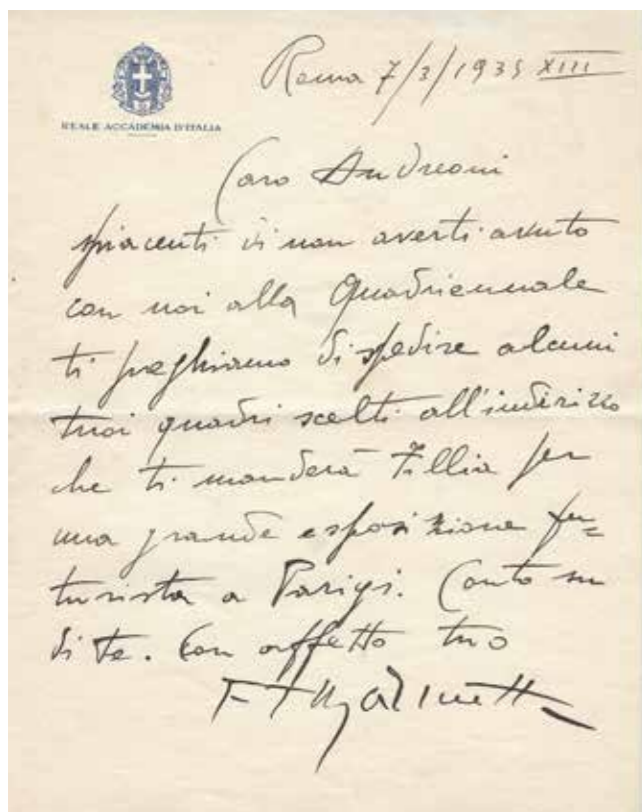 REALE ACCADEMIA D'ITALIA
Roma 7/3/1935 XIII
Caro Andreoni
spiacenti di non averti avuto
con noi alla Quadriennale
ti preghiamo di spedire alcuni
tuoi quadri scelti all'indirizzo
che ti manderà Fillia per
una grande esposizione fu=
turista a Parigi. Conto su
di te. Con affetto tuo
F T Marinetti